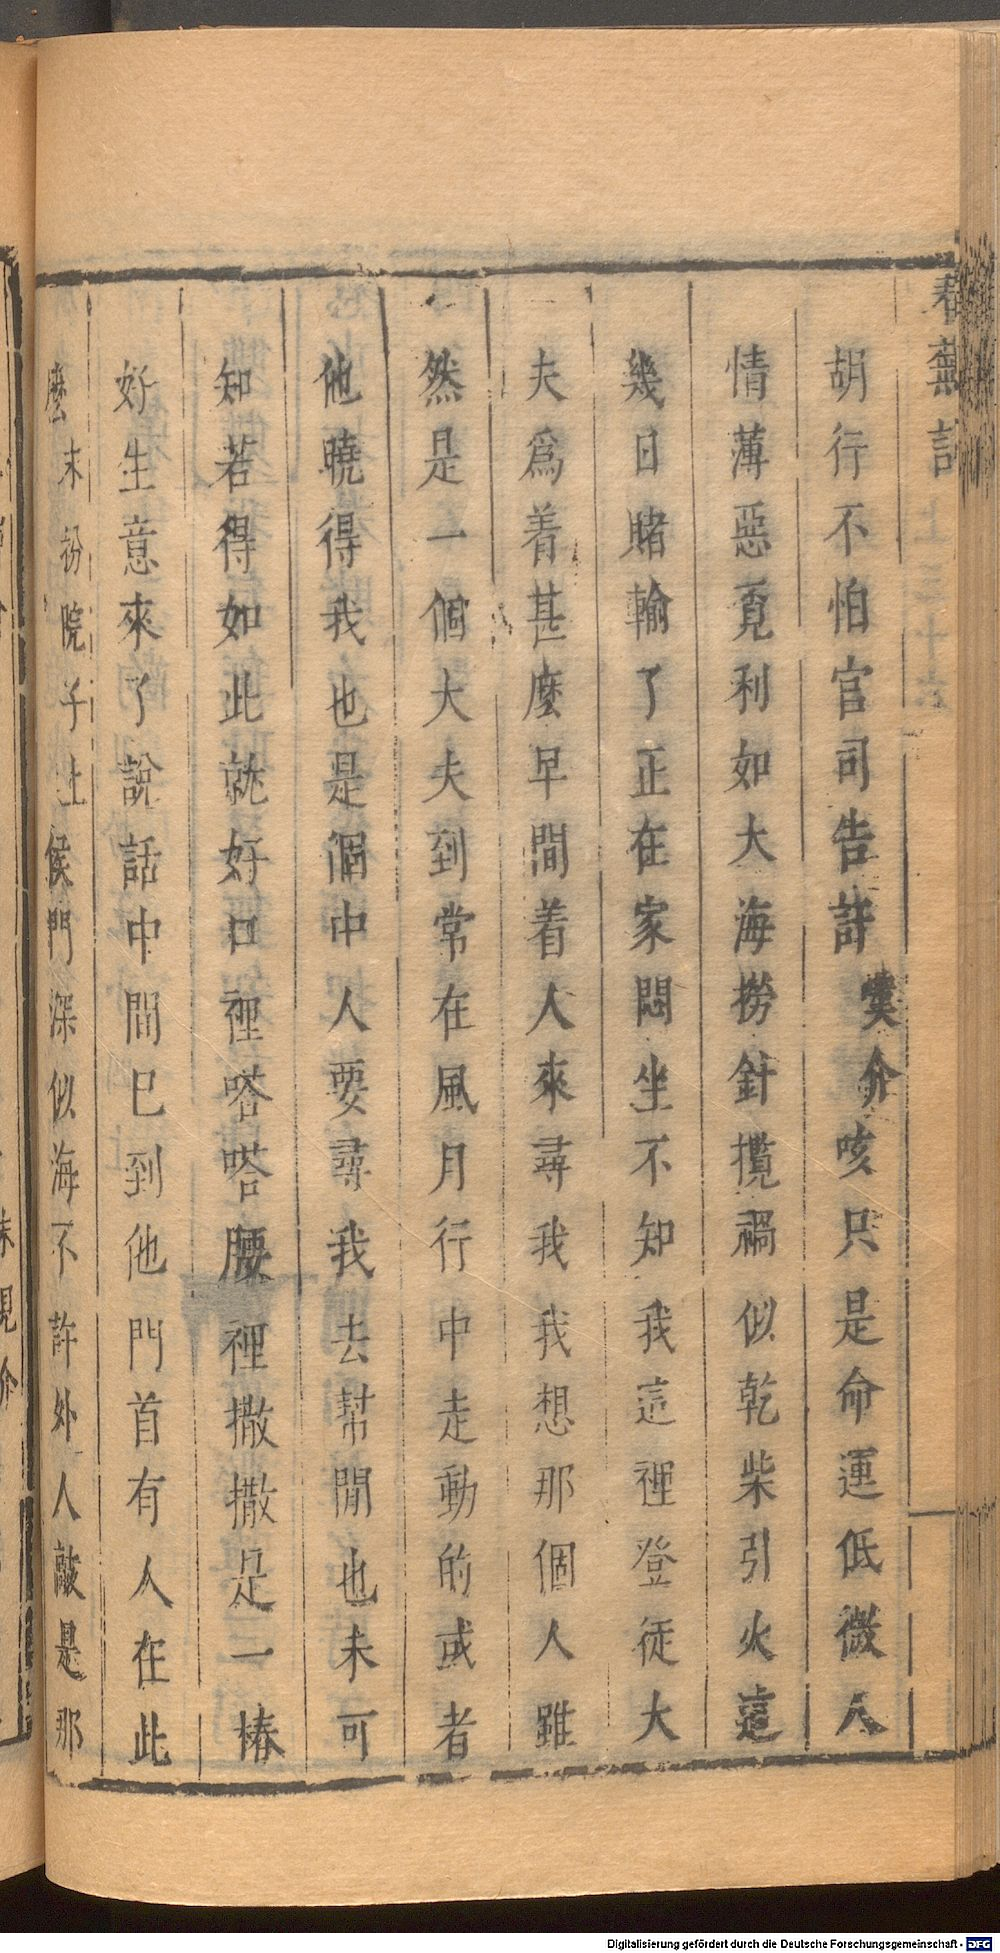 蕪記
上 三十六
胡行不怕官司告許嘆介咳只是命運低微人
情薄惡覓利如大海撈針攬禍似乾柴引火這
幾日賭輸了正在家悶坐不知我這裡登徒大
夫爲着甚麼早間着人來尋我我想那個人雖
然是一個大夫到常在風月行中走動的或者
他曉得我也是個中人要尋我去幫閒也未可
知若得如此就好口裡嗒嗒腰裡撒撒是一樁
好生意來了說話中間巳到他門首有人在此
麼末扮院子上侯門深似海不許外人敲是那
末見介
Digitalisierung gefördert durch die Deutsche Forschungsgemeinschaft - DFG